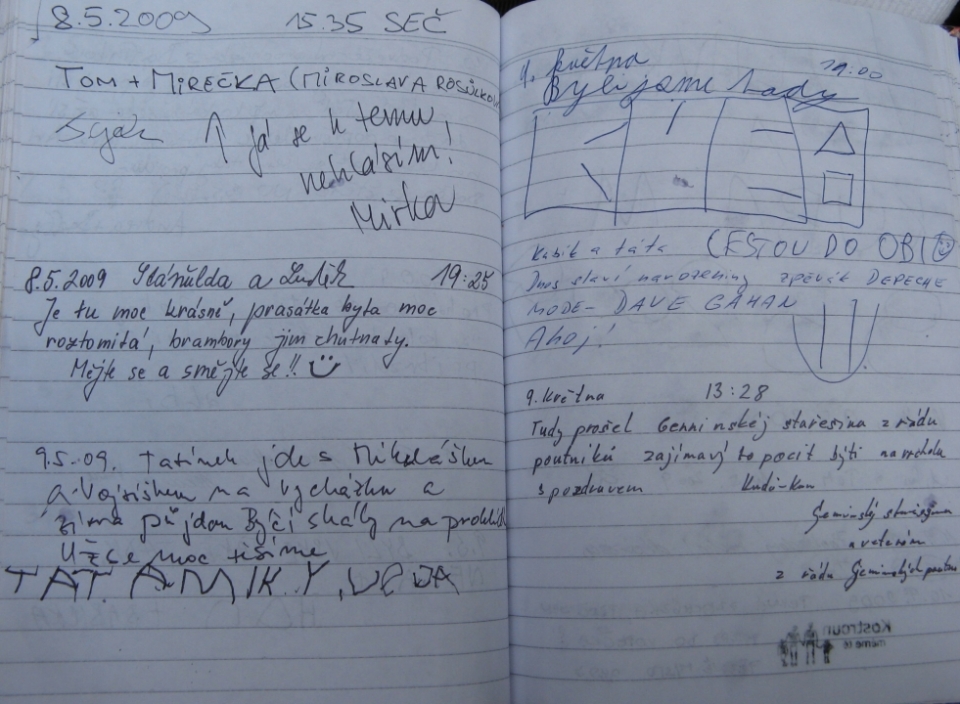 8.5.2009 15.35 SEČ
TOM + MIREČKA (MIROSLAVA ROSŮLKOV
já se k temu
nehlásím!
Mirka
8.5.2009 Stáňulda a Luděk 19:25
Je tu moc krásně, prasátka byla moc
roztomilá, brambory jim chutnaly.
Mějte se a smějte se!!
9.5.09. Tatínek jde s Mikolášem
a Vojtíškem na vycházku a
zítra půjdou Býčí skály na prohlíd
už se moc těšíme
TAT. A MIK. Y
9. května 19.00
Byli jsme tady
a táta CESTOU DO OBI
Dnes slaví narozeniny zpěvák DEPECHE
MODE- DAVE GAHAN
Ahoj!
9. Května 13:28
Tudy prošel stařešina z řádu
poutníků zajímavý to pocit býti na vrcholu
s pozdravem
stařešina
a veterán
z řádu
Kostroun
máme tě